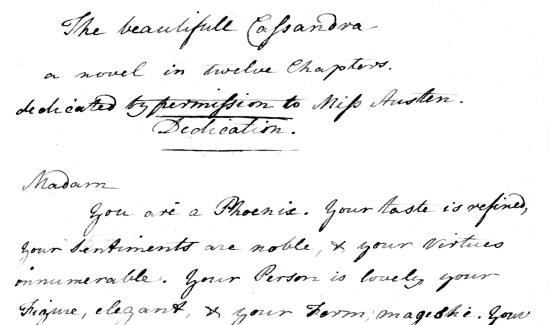 The beautifull Cassandra
a novel in twelve Chapters.
dedicated by permission to Miss Austen.
Dedication.
Madam
You are a Phoenix. Your taste is refined,
Your Sentiments are noble, & your Virtues
innumerable. Your Person is lovely, your
Figure, elegant, & your Form, magestic. Your